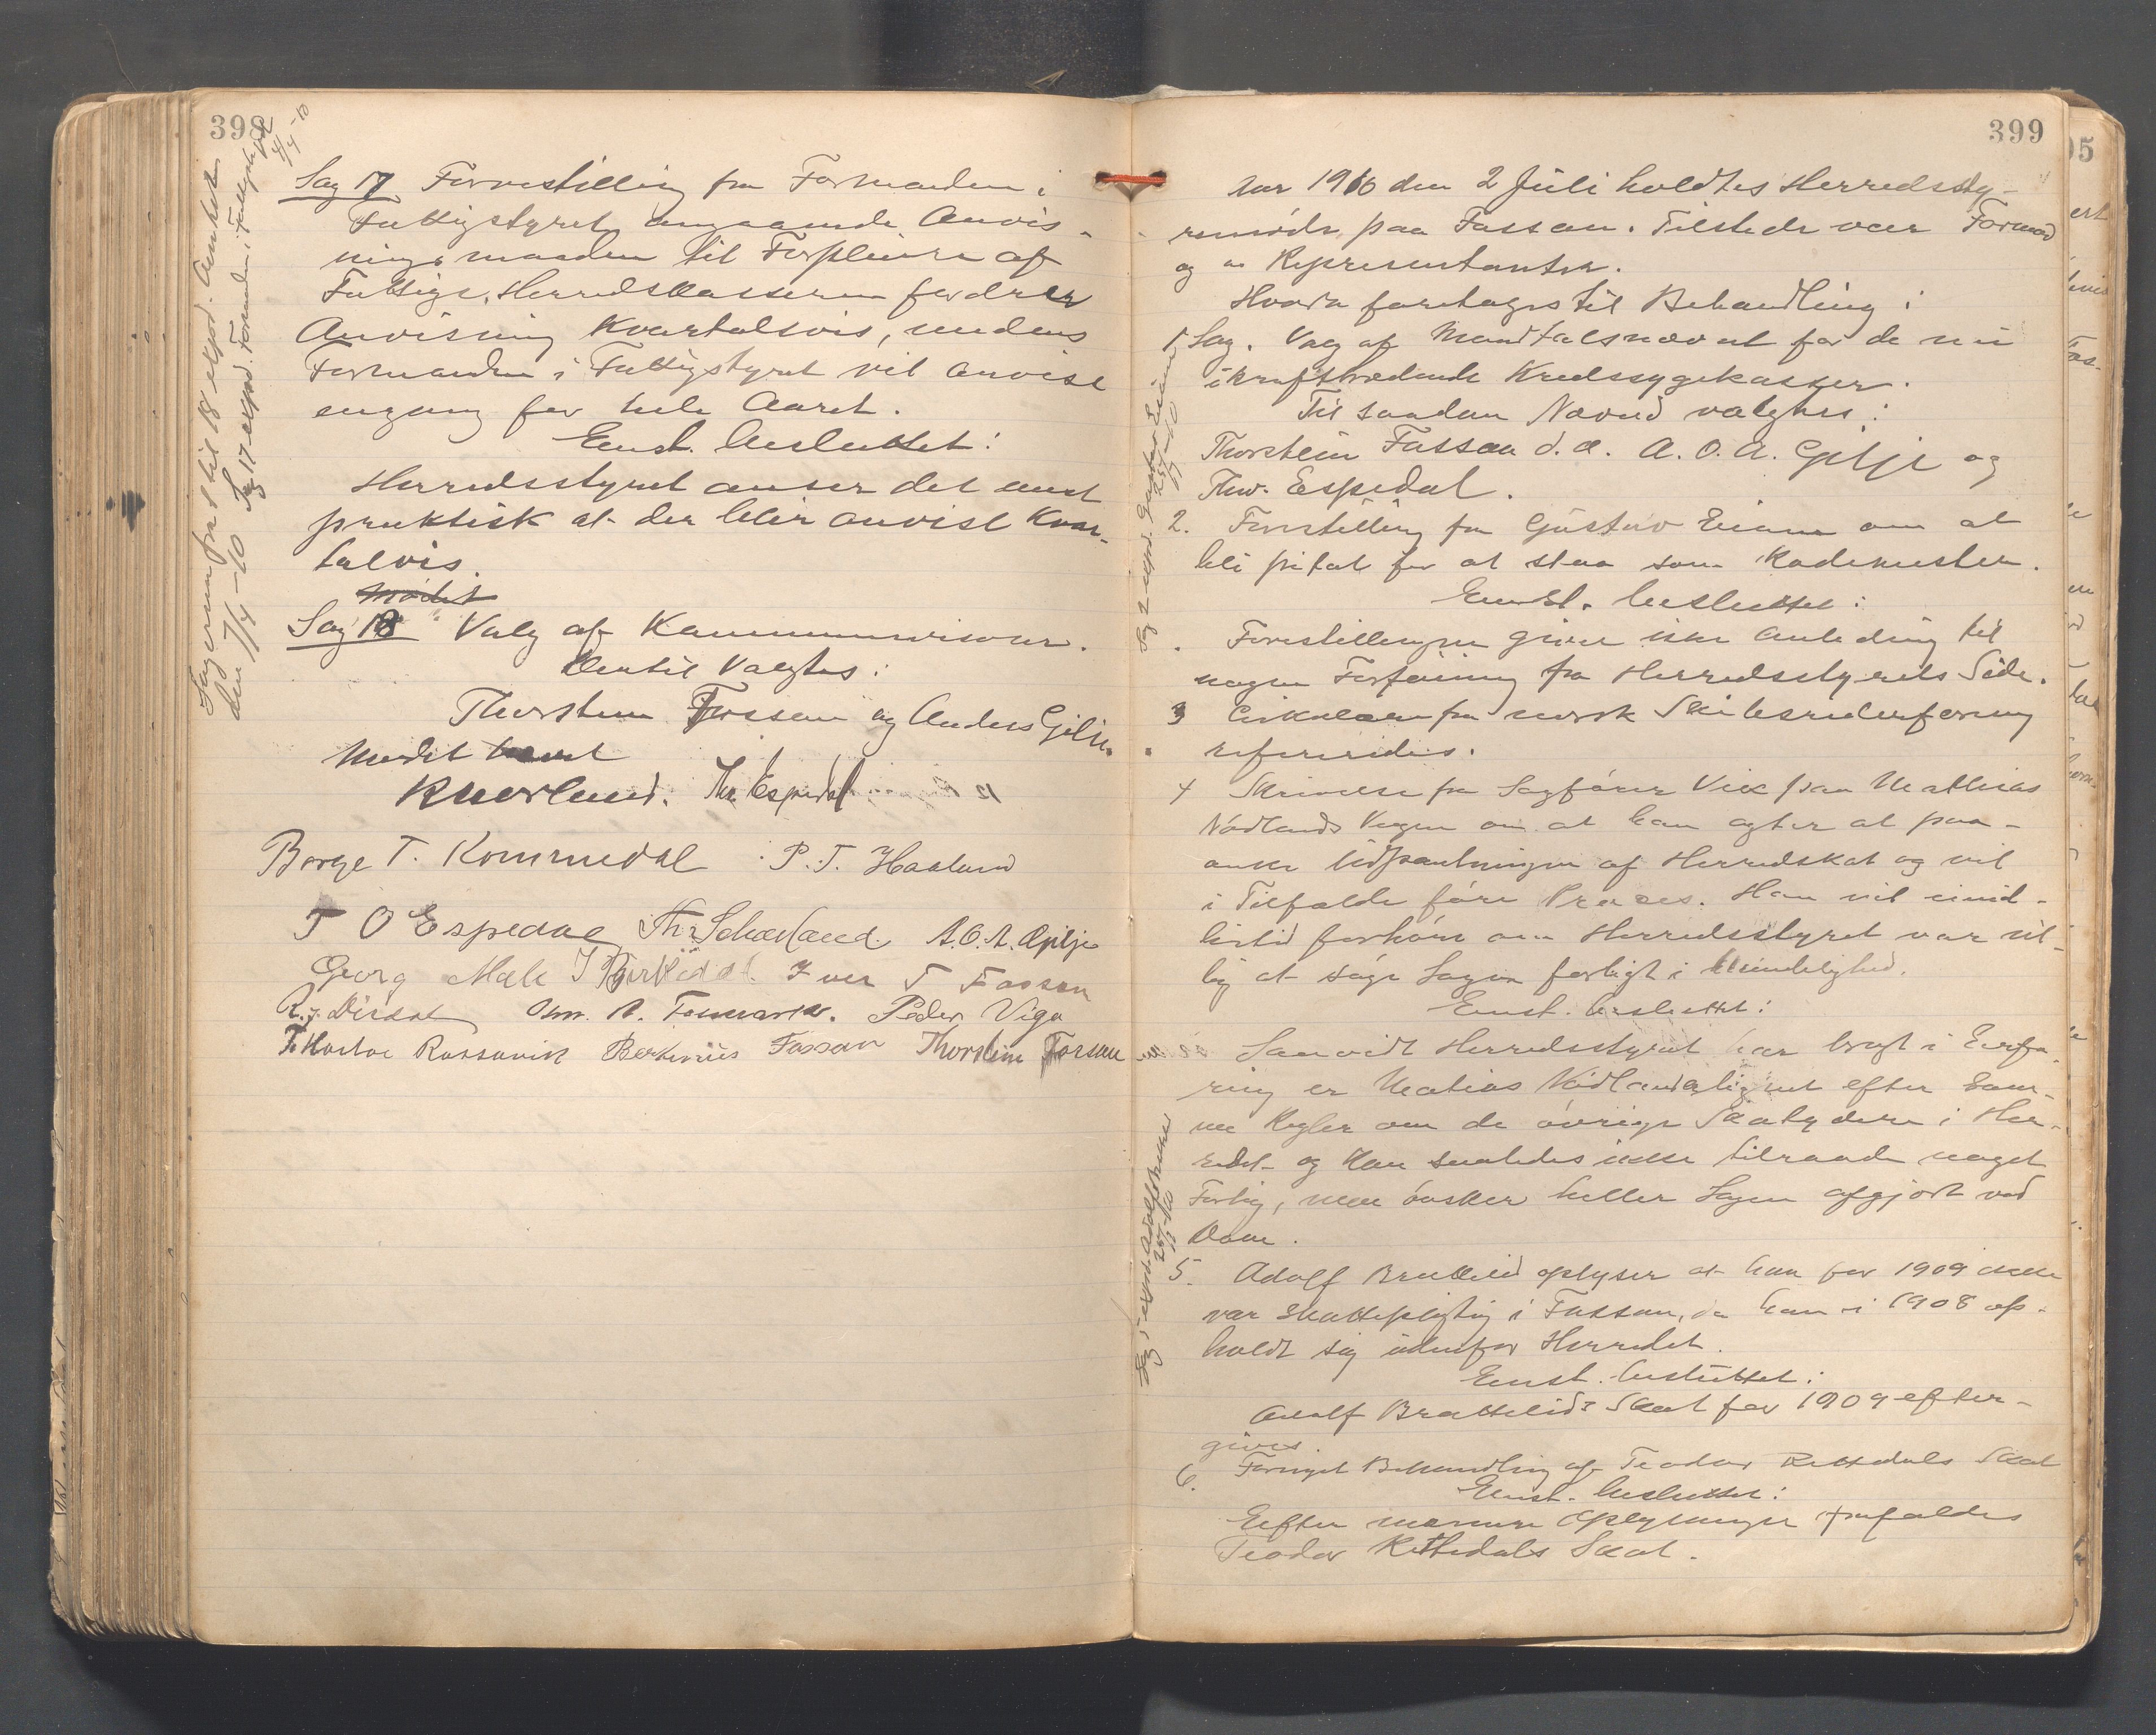 398
Sagerne fra 1 til 18 exped. Amtet
den 7/4-10 Sag 17 exped. Formanden i Fattigstyret
4/4-10
Sag 17 Forestilling fra Formanden i
Fattigstyret angaaende Anvis-
ningsmaaden til Forpleiere af
Fattige. Herredskassereren fordrer
Anvisning Kvartalsvis, medens
Formanden i Fattigstyret vil anvise
engang for hele Aaret.
Enst. besluttet:
Herredsstyret anser det mest
praktisk at der blir anvist Kvar-
talvis.
Mødet
Sag 18 Valg af Kommunerevisorer.
Dertil valgtes:
Thorstein Fossan og Anders Gilje.
Mødet hævet
R Maarland. Th. Espedal
Borge T. Kommedal P. T. Haaland
T O Espedal Th. Skaarland. A. O. A. Gilje
Georg Mæle I Birkedal Iver T Fossan
R. J. Dirdal Om. A. Tenmark. Peder Viga
T. Hartvi Rossavik Berteniüs Fossan Thorstein Fossan
399
Aar 1910 den 2 Juli holdtes Herredssty-
remöde paa Fossan. Tilstede var Formand
og Repræsentanter.
Hvorda foretages til Behandling:
1 Sag. Valg af Mandtalsnævnd for de nu
ikrafttrædende Kredssygekasser.
Til saadan Nævnd valgtes:
Thorstein Fossan d. æ. A. O. A. Gilje og
Thv. Espedal.
2. Forestilling fra Gustav Eiane om at
bli fritat for at staa som Rodemester.
Enst. besluttet:
Forestillingen giver ikke Anledning til
nogen Forføining fra Herredsstyrets Side.
3 Cirkulære fra norsk Skibsrederforening
refereredes.
4 Skrivelse fra Sagförer Vik paa Mathias
Nödlands Vegne om at han agter at paa-
anke Udpantningen af Herredskat og vil
i Tilfælde före Proces. Han vil imid-
lertid forhöre om Herredsstyret var vil-
lig at söge Sagen forligt i Mindelighed.
Enst. besluttet:
Saavidt Herredsstyret har bragt i Erfa-
ring er Matias Nödland lignet efter sam-
me Regler om de övrige Skatydere i Her-
redet og kan saaledes ikke tilraade noget
Forlig, men önsker heller Sagen afgjort ved
Dom.
5. Adolf Brattelid oplyser at han for 1909 ikke
var skattepligtig i Fossan, da han i 1908 op-
holdt sig udenfor Herredet.
Enst. besluttet:
Adolf Brattelids Skat for 1909 efter-
gives.
6. Fornyet Behandling af Teodor Rettedals Skat
Enst. besluttet:
Efter nærmere Oplysninger frafaldes
Teodor Rettedals Skat.
Sag 2 exped. Gustav Eiane
25/7-10
Sag 5 exped. Adolf Brattelid
25/7-10